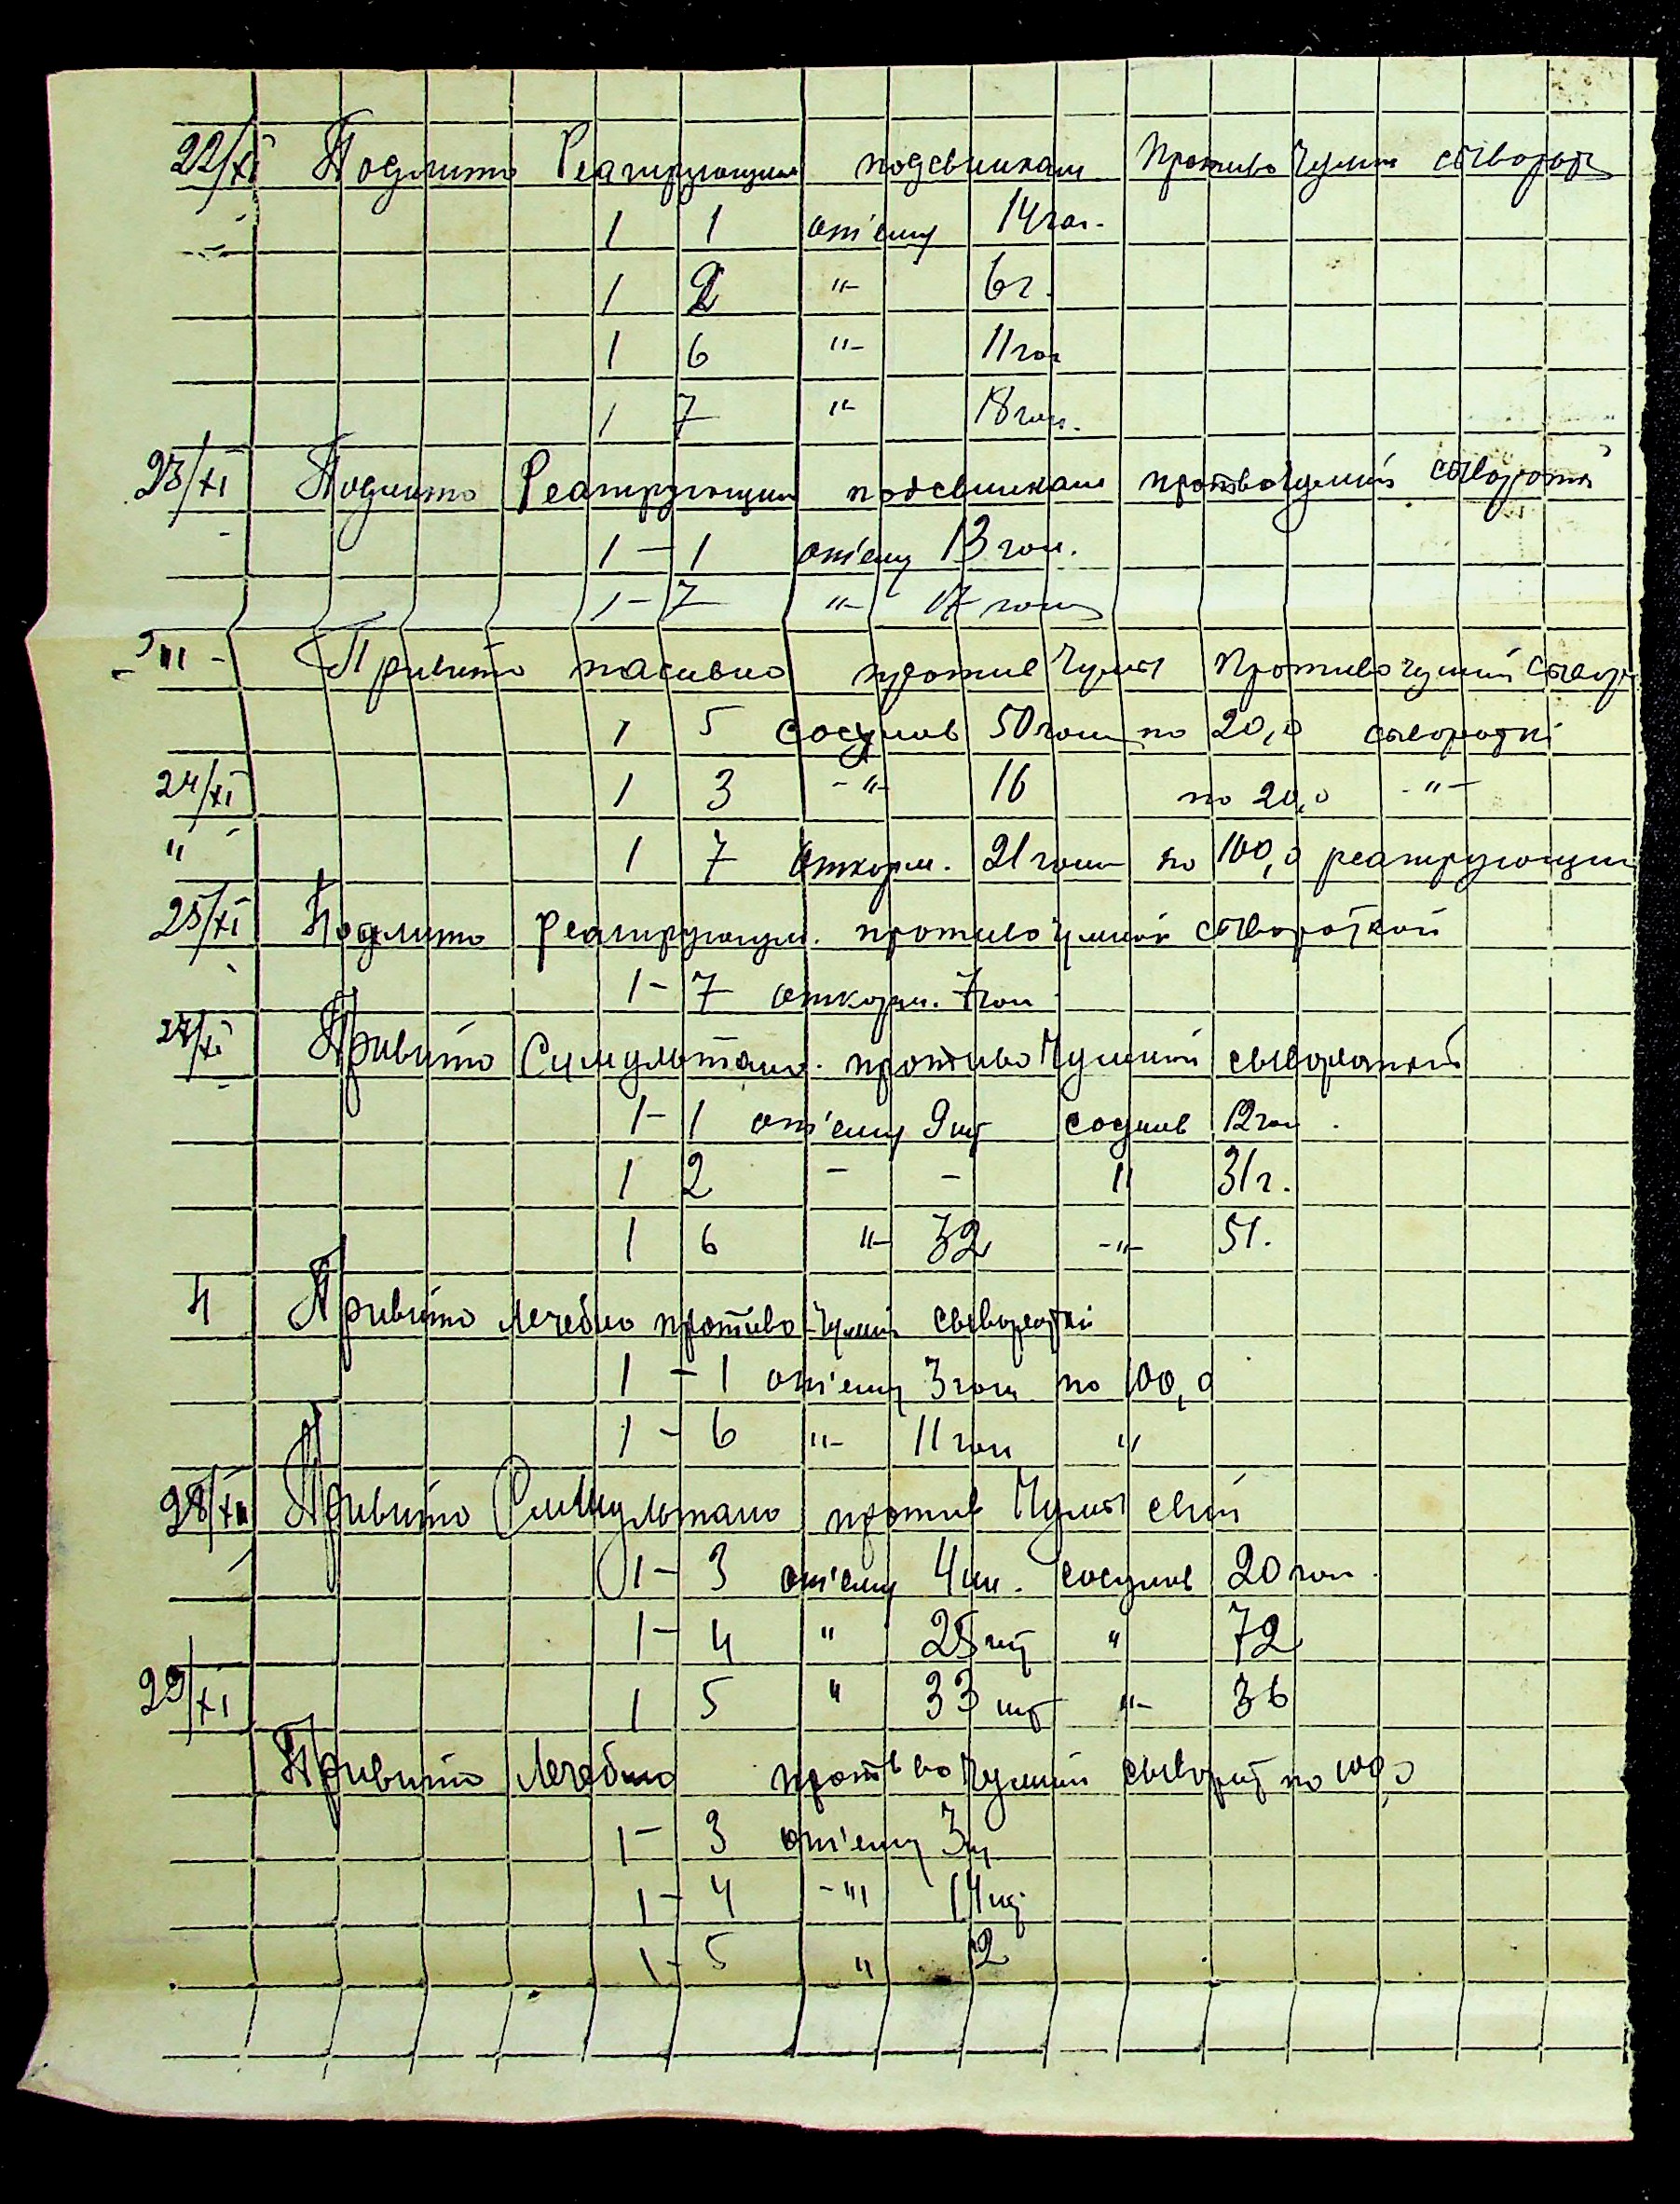 22/XI Подлито Реагирующим подсвинкам Противо Чумн сыворот
1 1 от'ему 14 гол.
1 2 -"- 6 г.
1 6 -"- 11 гол
1 7 -"- 18 гол.
23/XI Подлито Реагирующим подсвинкам противочумной сыворотк
1 - 1 от'ему 13 гол.
1 - 7 -"- 17 гол
-"- Привито пасивно против Чумы Противочумной Сывор
1 5 Сосунов 50 гол по 20,0 сыворотки
24/XI 1 3 -"- 16 по 20,0 -"-
" 1 7 откорм. 21 гол по 100,0 реагирующим
25/XI Подлито реагирующим. противо чумной сывороткой
1 - 7 откорм. 7 гол
27/XI Привито Симультано. противо Чумной сывороткой
1 - 1 от'ему 9 шт сосунов 12 гол.
1 2 - - " 31 г.
1 6 -"- 32 -"- 51.
" Привито лечебно противо-чумной сыворотки
1 - 1 от'ему 3 гол по 100,0
1 - 6 -"- 11 гол "
28/XI Привито Симультано против Чумы свин
1 - 3 от'ему 4 шт. сосунов 20 гол.
1 - 4 " 25 шт " 72
29/XI 1 5 " 33 шт -"- 36
Привито Лечебно противо чумной сыворот по 100,0
1 - 3 от'ему 3 ш
1 - 4 -"- 14 шт
1 - 5 " 12